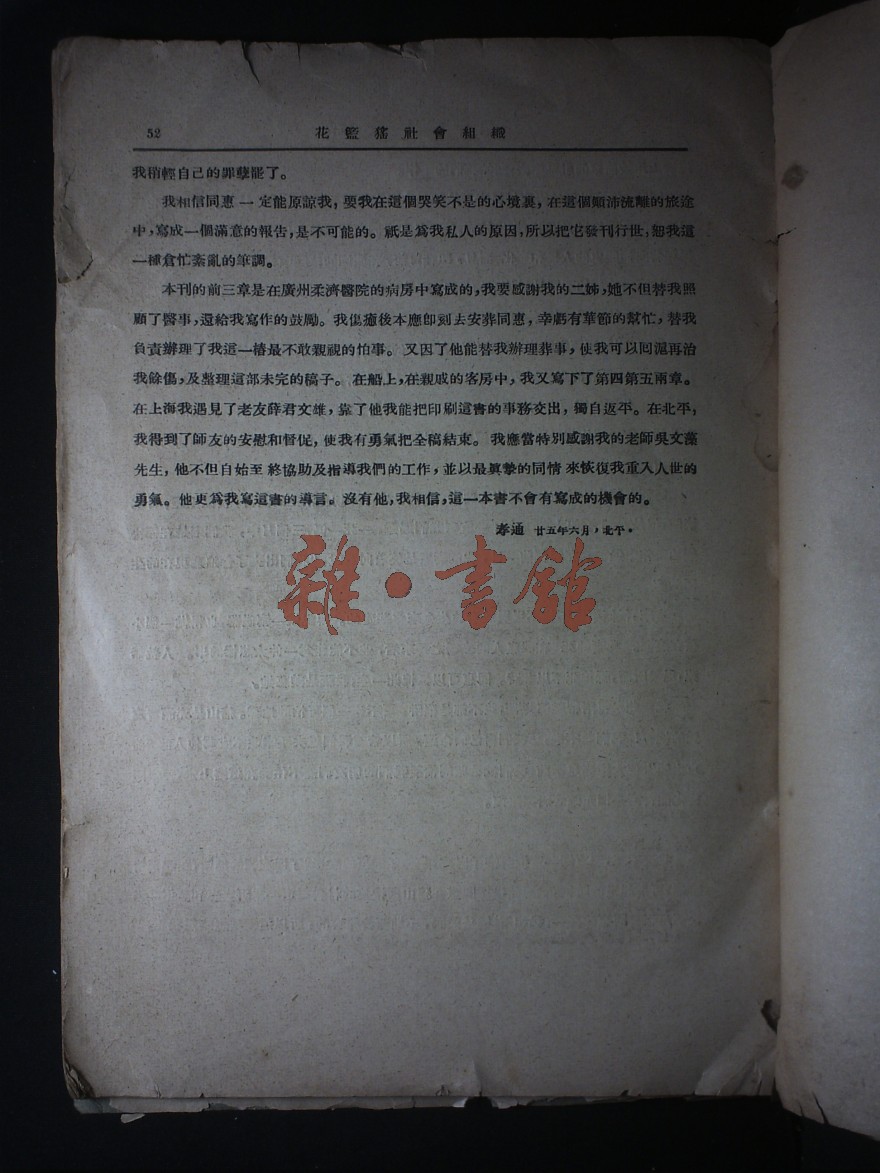 52 花籃猺社會組織
我稍輕自己的罪孽罷了。
我相信同惠一定能原諒我，要我在這個哭笑不是的心境裏，在這個顛沛流離的旅途
中，寫成一個滿意的報告，是不可能的。祇是爲我私人的原因，所以把它發刊行世，恕我這
一種倉忙紊亂的筆調。
本刊的前三章是在廣州柔濟醫院的病房中寫成的，我要感謝我的二姊，她不但替我照
顧了醫事，還給我寫作的鼓勵。我傷癒後本應卽刻去安葬同惠，幸虧有華節的幫忙，替我
負責辦理了我這一樁最不敢親視的怕事。又因了他能替我辦理葬事，使我可以回滬再治
我餘傷，及整理這部未完的稿子。在船上，在親戚的客房中，我又寫下了第四第五兩章。
在上海我遇見了老友薛君文雄，靠了他我能把印刷這書的事務交出，獨自返平。在北平，
我得到了師友的安慰和督促，使我有勇氣把全稿結束。我應當特別感謝我的老師吳文藻
先生，他不但自始至終協助及指導我們的工作，並以最眞摯的同情來恢復我重入人世的
勇氣。他更爲我寫這書的導言。沒有他，我相信，這一本書不會有寫成的機會的。
孝通 廿五年六月，北平。
雜·書館